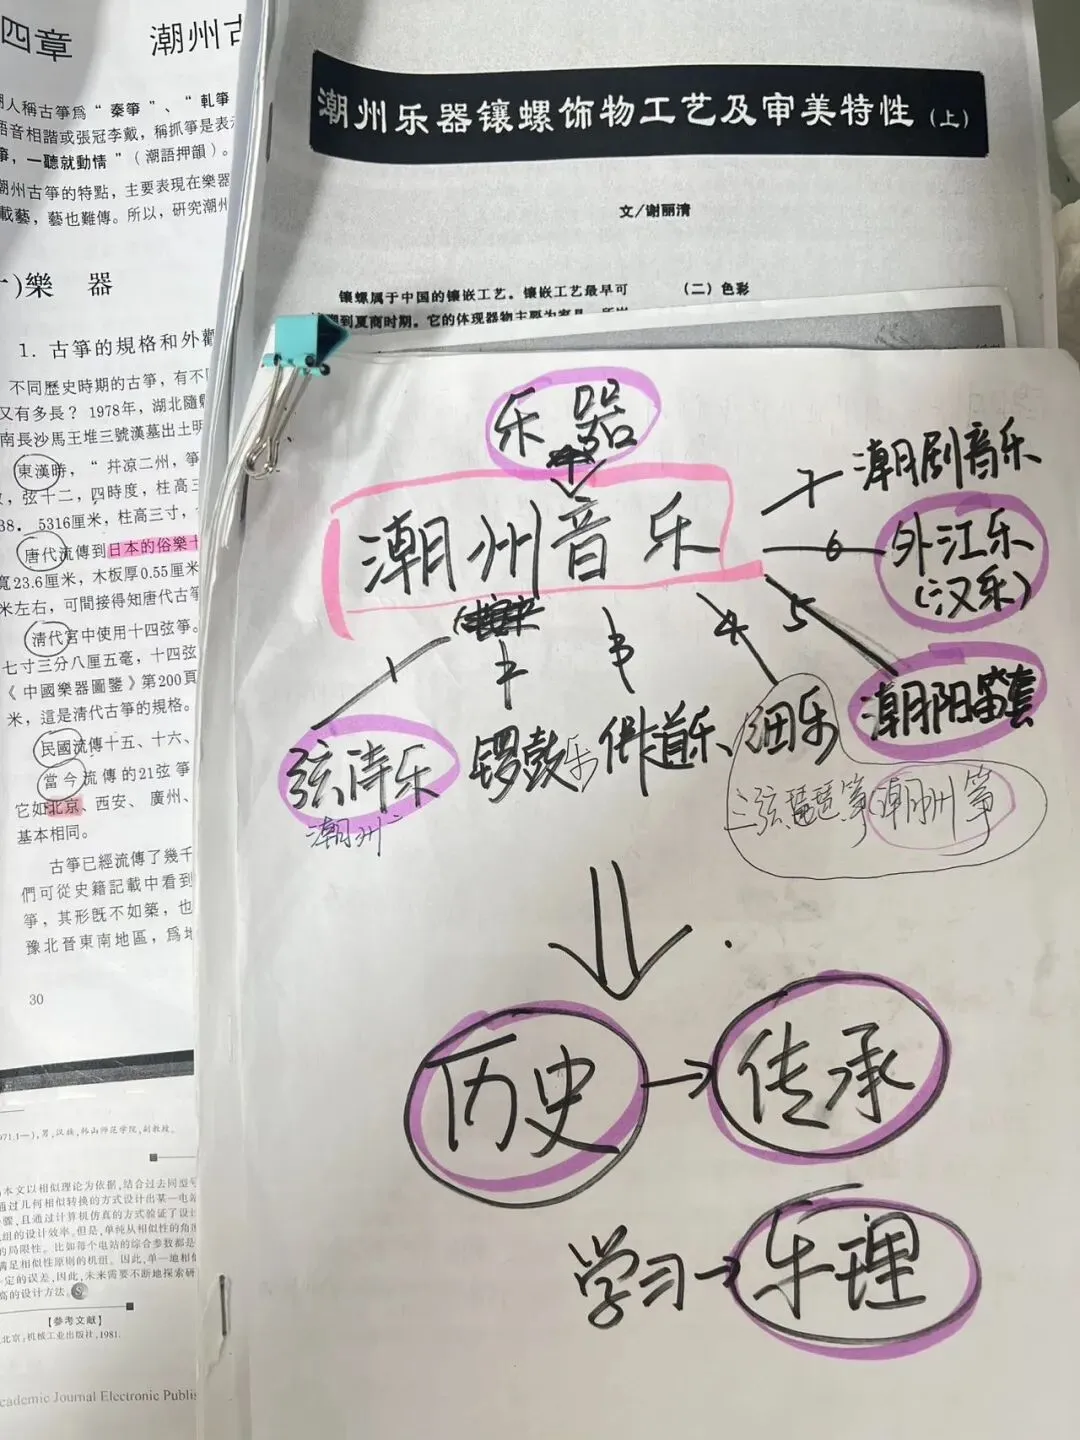 四章 潮州古
人稱古箏爲“秦箏”、“軋箏
語音相諧或張冠李戴，稱抓箏是表示
箏，一聽就動情”（潮語押韻）。
潮州古箏的特點，主要表現在樂器
載藝，藝也難傳。所以，研究潮州
)樂 器
1. 古箏的規格和外觀
不同歷史時期的古箏，有不
又有多長？1978年，湖北隨縣
南長沙馬王堆三號漢墓出土明
東漢時，“井凉二州，箏
弦十二，四時度，柱高三
38．5316厘米，柱高三寸，
唐代流傳到日本的俗樂十
寬23.6厘米，木板厚0.55厘米
米左右，可間接得知唐代古箏
清代宮中使用十四弦箏。
七寸三分八厘五毫，十四弦
《中國樂器圖鑒》第200頁
米，這是清代古箏的規格。
民國流傳十五、十六、
當今流傳的21弦箏
它如北京、西安、廣州、
基本相同。
古箏已經流傳了幾千
們可從史籍記載中看到
箏，其形旣不如築，也
豫北晉東南地區，爲地
30
971.1—)，男，汉族，韩山师范学院，副教授。
本文以相似理论为依据，结合过去同型号
通过几何相似转换的方式设计出某一电站
骤，且通过计算机仿真的方式验证了设计
组的设计效率。但是，单纯从相似性的角度
的局限性。比如每个电站的综合参数都是
满足相似性原则的机组。因此，单一地相似
定的误差，因此，未来需要不断地探索研
高的设计方法。
【参考文献】
北京：机械工业出版社，1981.
cademic Journal Electronic Publis
潮州乐器镶螺饰物工艺及审美特性（上）
文/谢丽清
镶螺属于中国的镶嵌工艺。镶嵌工艺最早可
到夏商时期。它的体现器物主要为家具
（二）色彩
乐器
潮州音乐
1 弦诗乐
潮州
2 锣鼓乐
3
4 细乐
三弦琵琶筝 潮州筝
5 潮阳笛套
6 外江乐
（汉乐）
7 潮剧音乐
历史→传承
学习→乐理